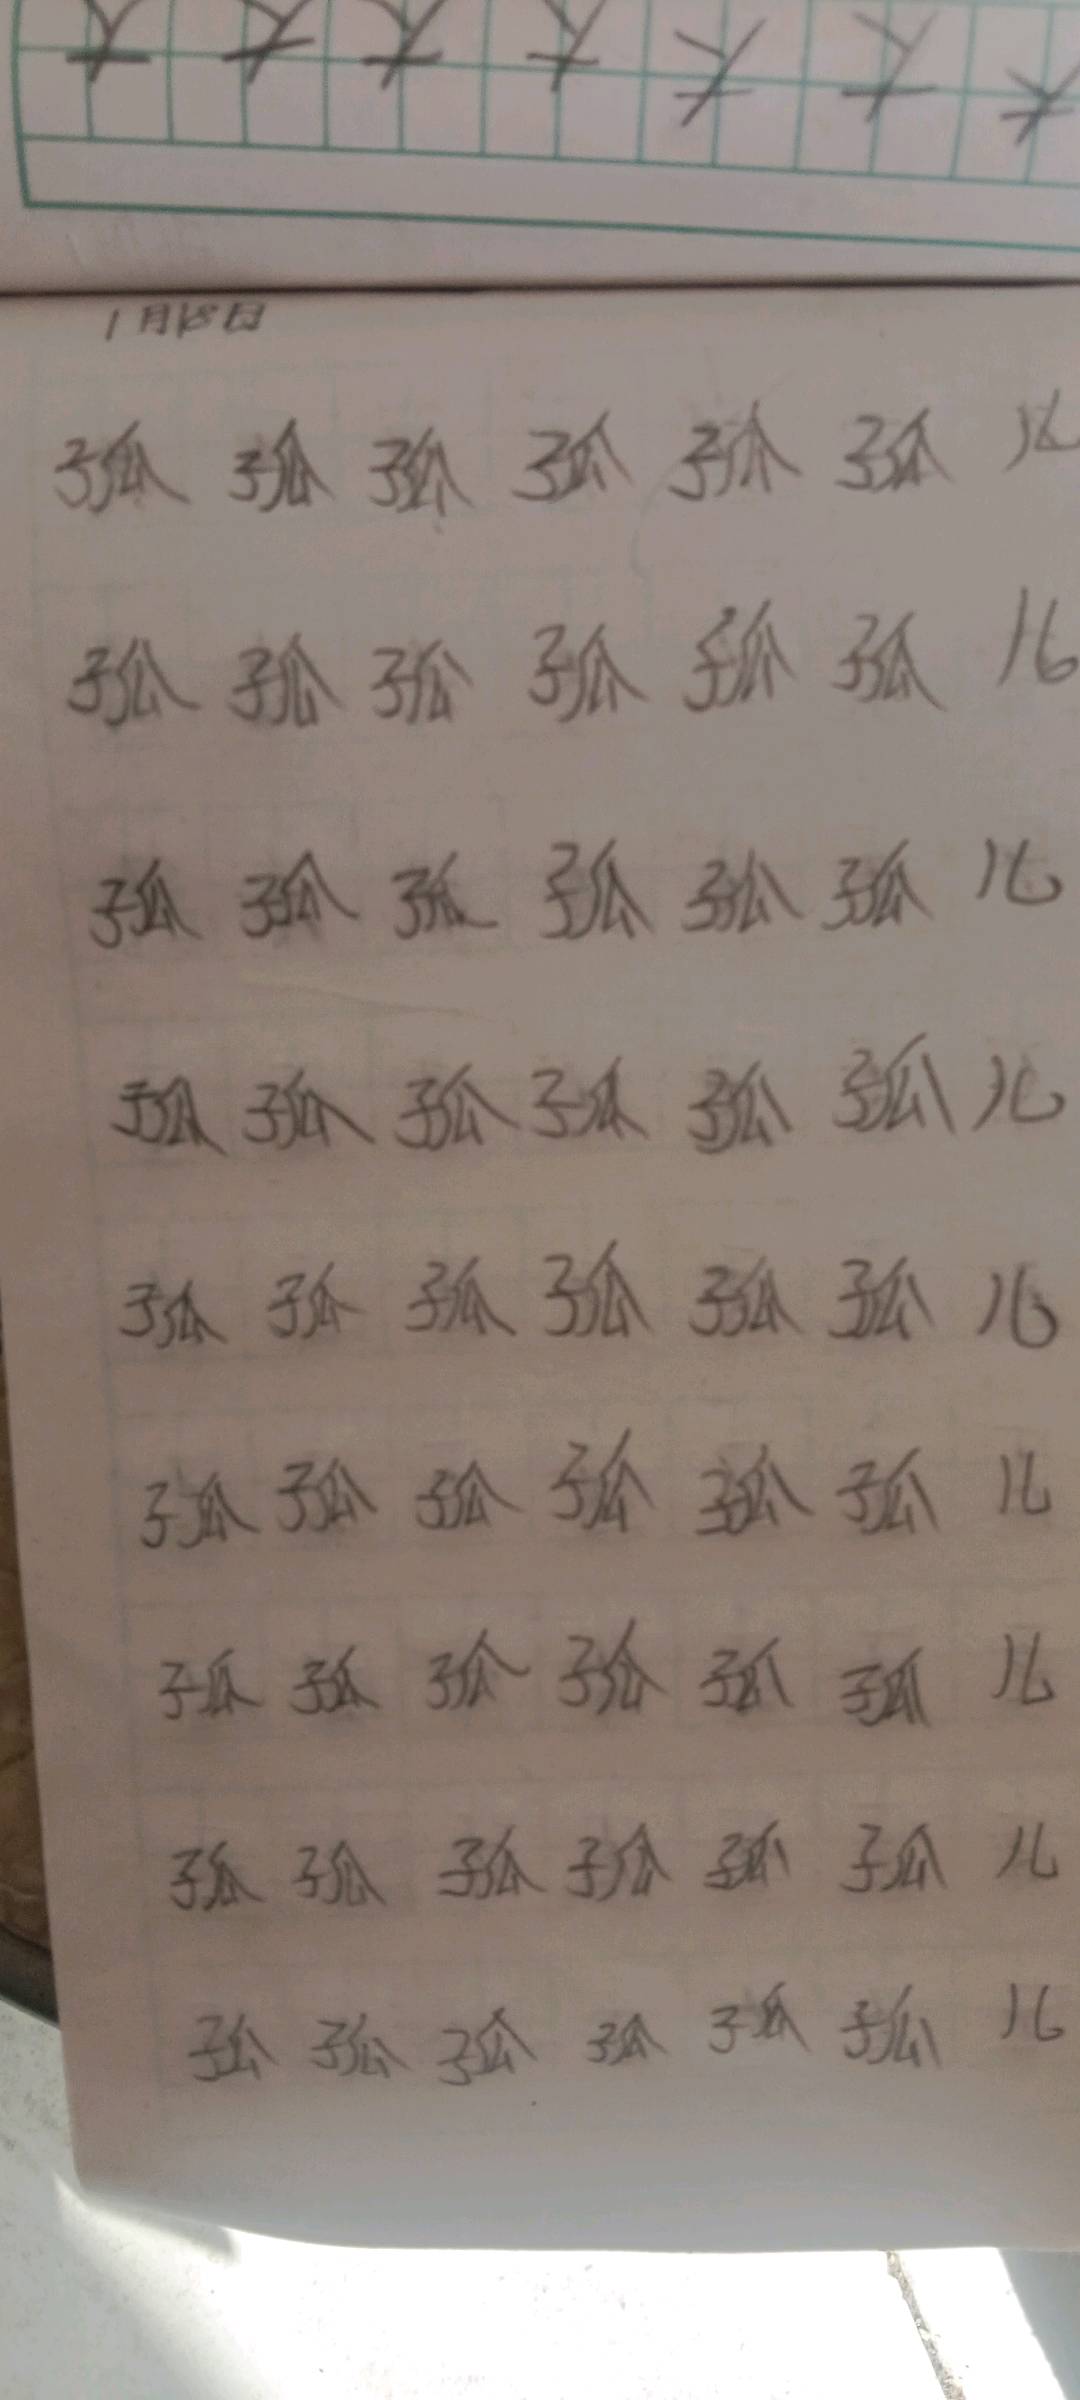 1月18日
孤 孤 孤 孤 孤 孤 儿
孤 孤 孤 孤 孤 孤 儿
孤 孤 孤 孤 孤 孤 儿
孤 孤 孤 孤 孤 孤 儿
孤 孤 孤 孤 孤 孤 儿
孤 孤 孤 孤 孤 孤 儿
孤 孤 孤 孤 孤 孤 儿
孤 孤 孤 孤 孤 孤 儿
孤 孤 孤 孤 孤 孤 儿